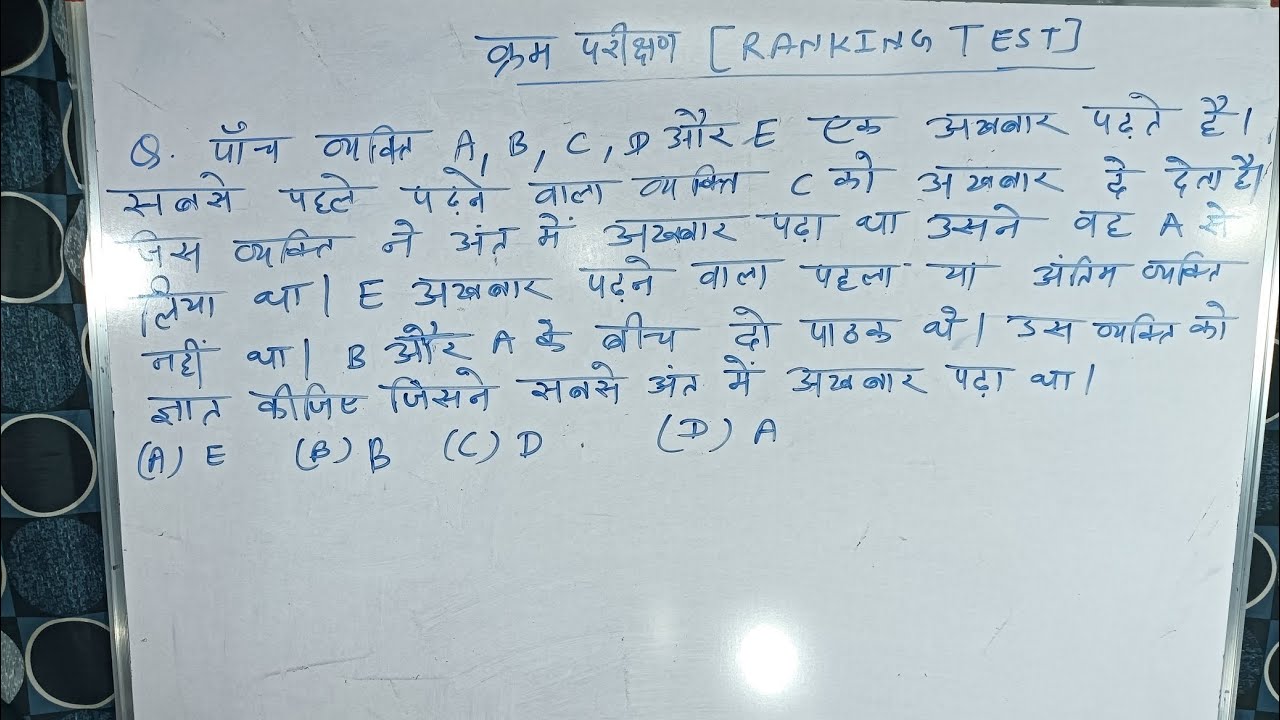 क्रम परीक्षण [RANKING TEST]
Q. पाँच व्यक्ति A, B, C, D और E एक अखबार पढ़ते है।
सबसे पहले पढ़ने वाला व्यक्ति C को अखबार दे देता है।
जिस व्यक्ति ने अंत में अखबार पढ़ा था उसने वह A से
लिया था। E अखबार पढ़ने वाला पहला या अंतिम व्यक्ति
नहीं था। B और A के बीच दो पाठक थे। उस व्यक्ति को
ज्ञात कीजिए जिसने सबसे अंत में अखबार पढ़ा था।
(A) E (B) B (C) D (D) A